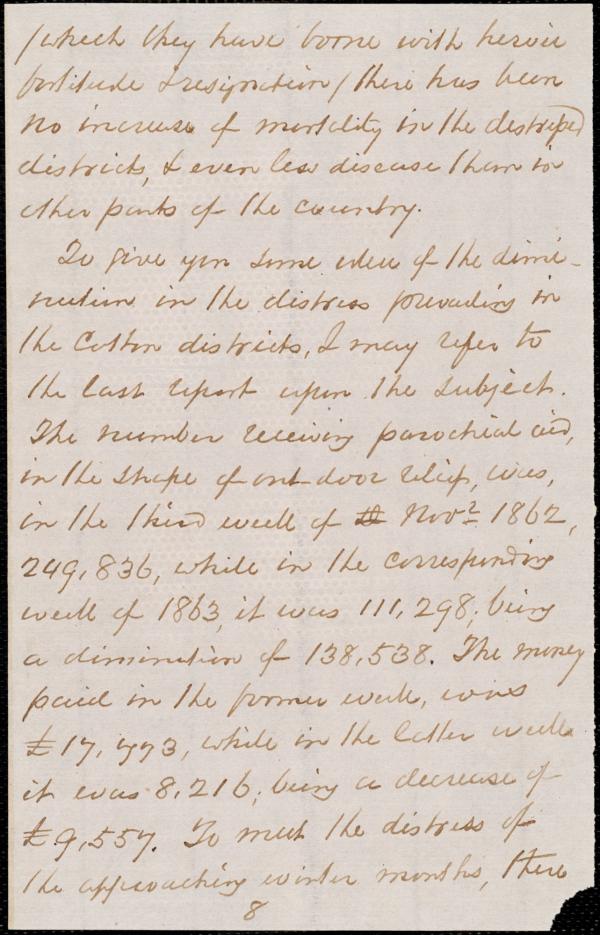 (which they have borne with heroic
fortitude & resignation) there has been
no increase of mortality in the distressed
districts, & even less disease than in
other parts of the country.
To give you some idea of the dimi-
nution in the distress prevailing in
the Cotton districts, I may refer to
the last report upon the subject.
The number receiving parochial aid,
in the shape of out-door relief, was,
in the third week of Novr. 1862,
249,836, while in the corresponding
week of 1863, it was 111,298; being
a diminution of 138,538. The money
paid in the former week, was
£17,773, while in the latter week
it was 8,216; being a decrease of
£9,557. To meet the distress of
the approaching winter months, there
8